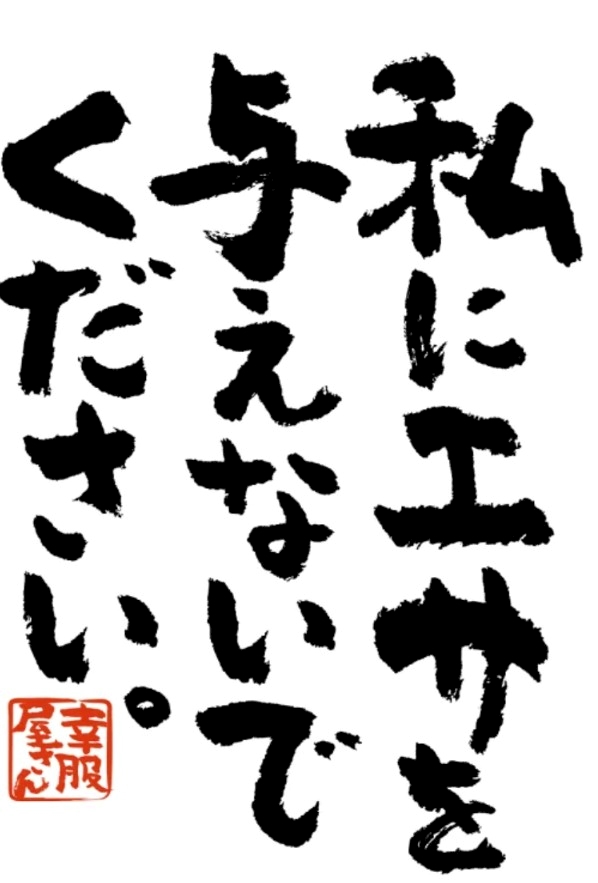 私にエサを
与えないで
ください。
幸服
屋さん